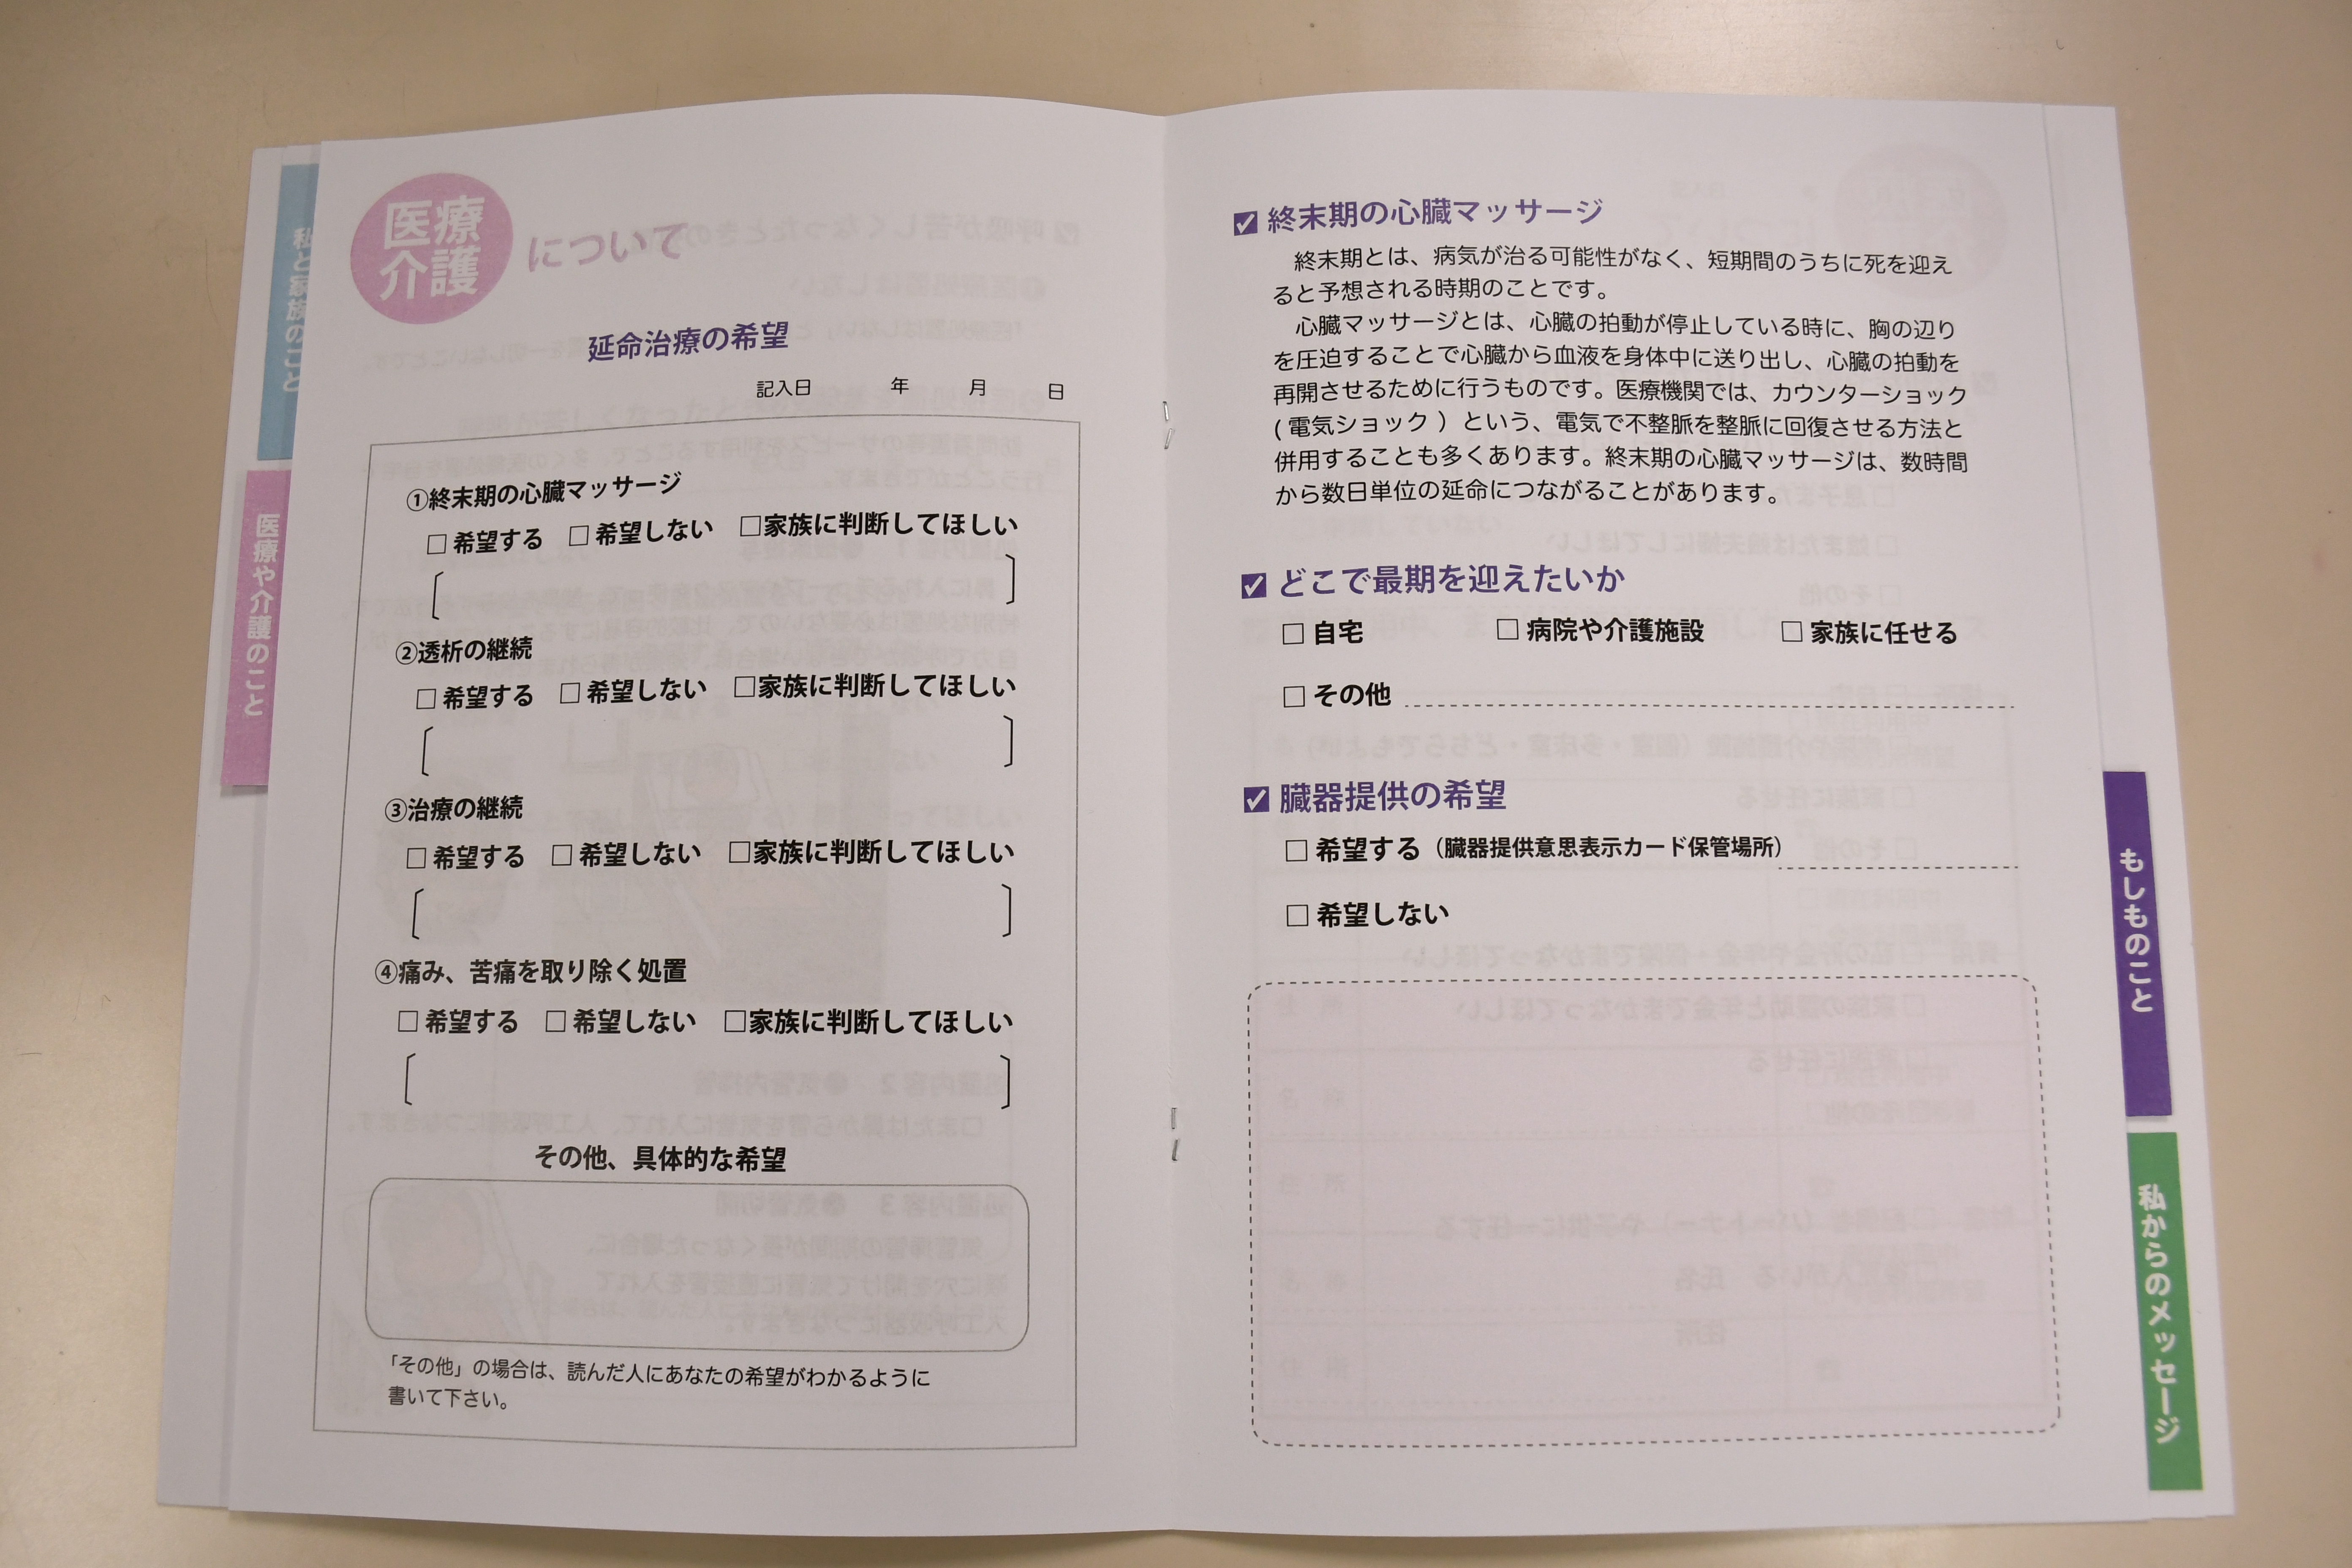 私と家族のこと
医療や介護のこと
医療
介護
について
延命治療の希望
記入日 年 月 日
①終末期の心臓マッサージ
□ 希望する □ 希望しない □家族に判断してほしい
②透析の継続
□ 希望する □ 希望しない □家族に判断してほしい
③治療の継続
□ 希望する □ 希望しない □家族に判断してほしい
④痛み、苦痛を取り除く処置
□ 希望する □ 希望しない □家族に判断してほしい
その他、具体的な希望
「その他」の場合は、読んだ人にあなたの希望がわかるように
書いて下さい。
☑ 終末期の心臓マッサージ
終末期とは、病気が治る可能性がなく、短期間のうちに死を迎え
ると予想される時期のことです。
心臓マッサージとは、心臓の拍動が停止している時に、胸の辺り
を圧迫することで心臓から血液を身体中に送り出し、心臓の拍動を
再開させるために行うものです。医療機関では、カウンターショック
( 電気ショック ）という、電気で不整脈を整脈に回復させる方法と
併用することも多くあります。終末期の心臓マッサージは、数時間
から数日単位の延命につながることがあります。
☑ どこで最期を迎えたいか
□ 自宅 □ 病院や介護施設 □ 家族に任せる
□ その他
☑ 臓器提供の希望
□ 希望する（臓器提供意思表示カード保管場所）
□ 希望しない
もしものこと
私からのメッセージ